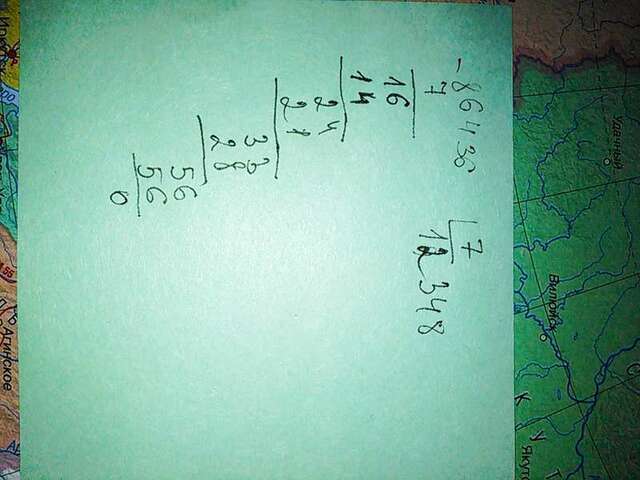 -86436 | 7
7
12348
16
14
24
21
33
28
56
56
0
Удачный
Вилюйск
Якут
Агинское
156